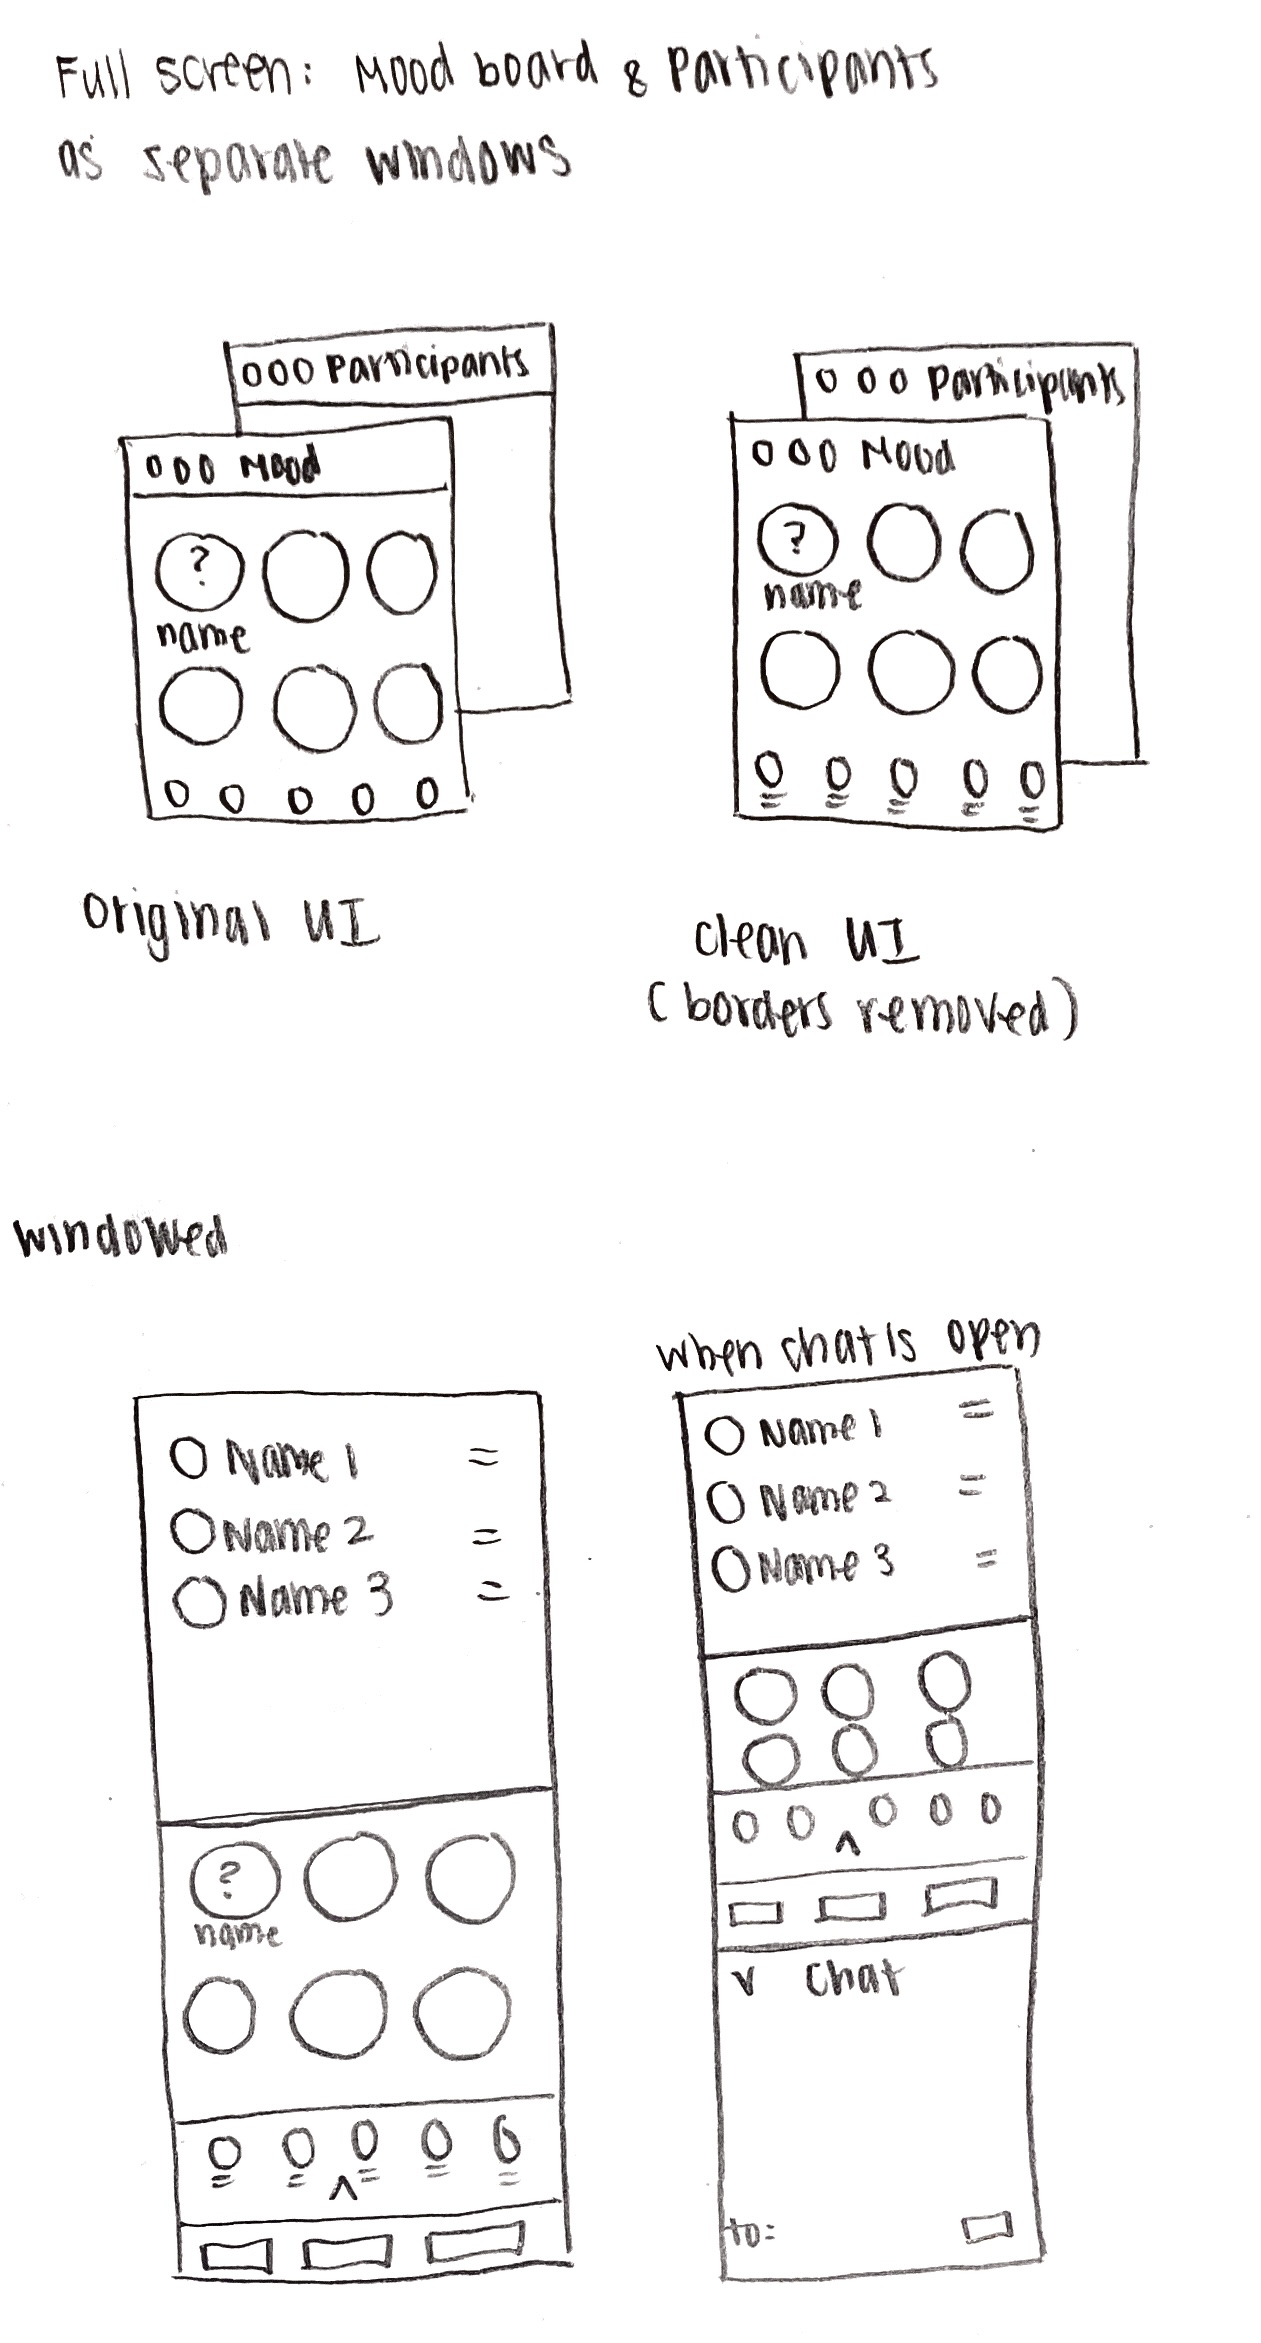 Full screen: Mood board & Participants
as separate windows
Participants
Mood
?
name
Original UI
Participants
Mood
?
name
clean UI
(borders removed)
windowed
Name 1
Name 2
Name 3
?
name
when chat is open
Name 1
Name 2
Name 3
Chat
to: